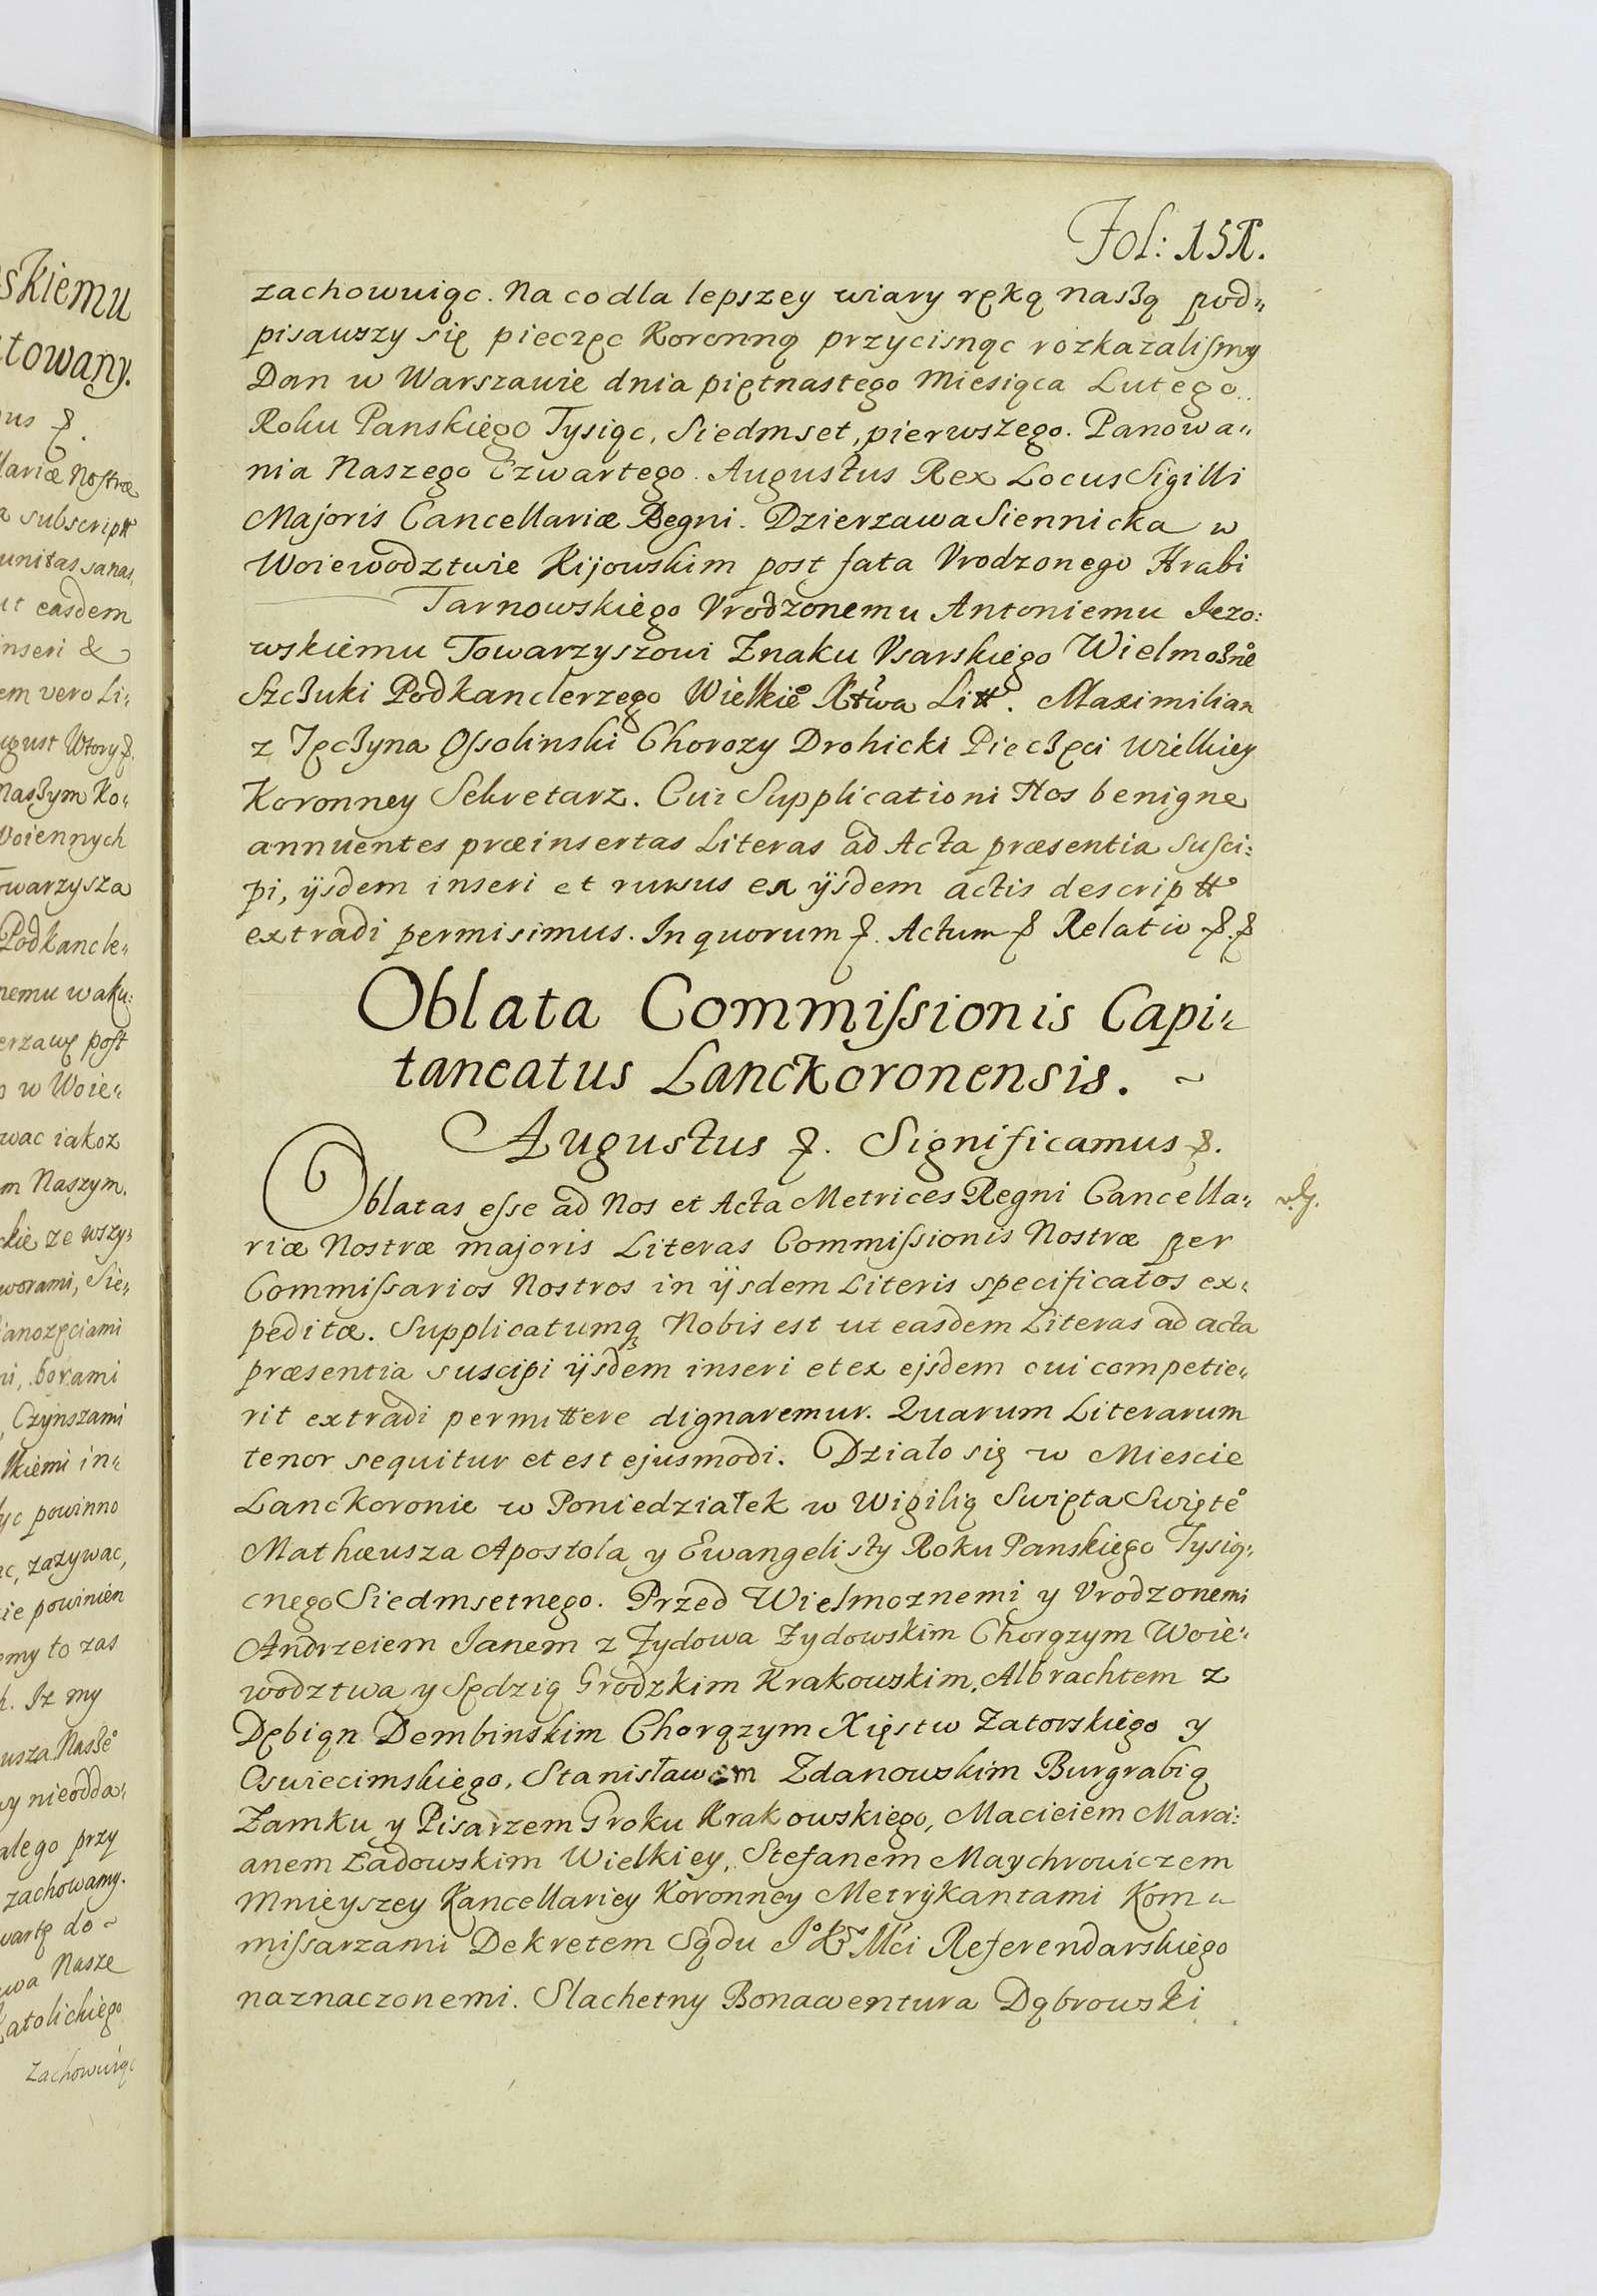 skiemu
towany.
us
lariæ Nostræ
a subscriptt
unitas sanas,
ut easdem
inseri &
em vero Li:
ugust Wtory
naszym Ko:
Woiennych
owarzysza
Podkancle:
nemu waku:
erzawę post
w Woie:
wac iakoz
m Naszym.
ckie ze wszy:
worami, Sie:
ianozęciami
ni, borami
, Czynszami
lkiemi in:
yc powinno
ac, zazywac,
ie powinien
omy to zas
h. Iz my
usza Nasze°
wy nieodda:
alego przy
zachowamy.
warte do
wa Nasze
Katolickiego
zachowuiąc
Fol: 151.
zachowuiąc. Na co dla lepszey wiary ręką naszą pod:
pisawszy się pieczęc Koronną przycisnąc rozkazalismy
Dan w Warszawie dnia piętnastego Miesiąca Lutego
Roku Panskiego Tysiąc, Siedmset, pierwszego. Panowa:
nia Naszego Czwartego. Augustus Rex Locus Sigilli
Majoris Cancellariæ Regni. Dzierzawa Siennicka w
Woiewodztwie Kijowskim post fata Vrodzonego Hrabi
Tarnowskiego Vrodzonemu Antoniemu Jezo:
wskiemu Towarzyszowi Znaku Vsarskiego Wielmożne°
Szczuki Podkanclerzego Wielkie° Xtwa Litt°. Maximilian
z Tęczyna Ossolinski Chorozy Drohicki Pieczęci Wielkiey
Koronney Sekretarz. Cui Supplicationi Nos benigne
annuentes præinsertas Literas ad Acta præsentia susci:
pi, ijsdem inseri et rursus ex ijsdem actis descriptt°
extradi permisimus. In quorum &. Actum & Relatio &. &
Oblata Commissionis Capi:
taneatus Lanckoronensis. ~
Augustus &. Significamus &.
Oblatas esse ad Nos et Acta Metrices Regni Cancella:
riæ Nostræ majoris Literas Commissionis Nostræ per
Commissarios Nostros in ijsdem Literis specificatos ex:
peditæ. Supplicatumq Nobis est ut easdem Literas ad acta
præsentia suscipi ijsdem inseri et ex ejsdem cui competie:
rit extradi permittere dignaremur. Quarum Literarum
tenor sequitur et est ejusmodi. Działo się w Miescie
Lanckoronie w Poniedziałek w Wigilią Swięta Swięte°
Mathæusza Apostoła y Ewangelisty Roku Panskiego Tysią:
cnego Siedmsetnego. Przed Wielmoznemi y Vrodzonemi
Andrzeiem Janem z Zydowa Zydowskim Chorązym Woie:
wodztwa y Sędzią Grodzkim Krakowskim, Albrachtem z
Dębian Dembinskim Chorązym Xięstw Zatorskiego y
Oswiecimskiego, Stanisławem Zdanowskim Burgrabią
Zamku y Pisarzem Groku Krakowskiego, Macieiem Marci:
anem Ładowskim Wielkiey, Stefanem Maychrowiczem
Mnieyszey Kancellariey Koronney Metrykantami Kom:
missarzami Dekretem Sądu J° K Mci Referendarskiego
naznaczonemi. Slachetny Bonawentura Dąbrowski